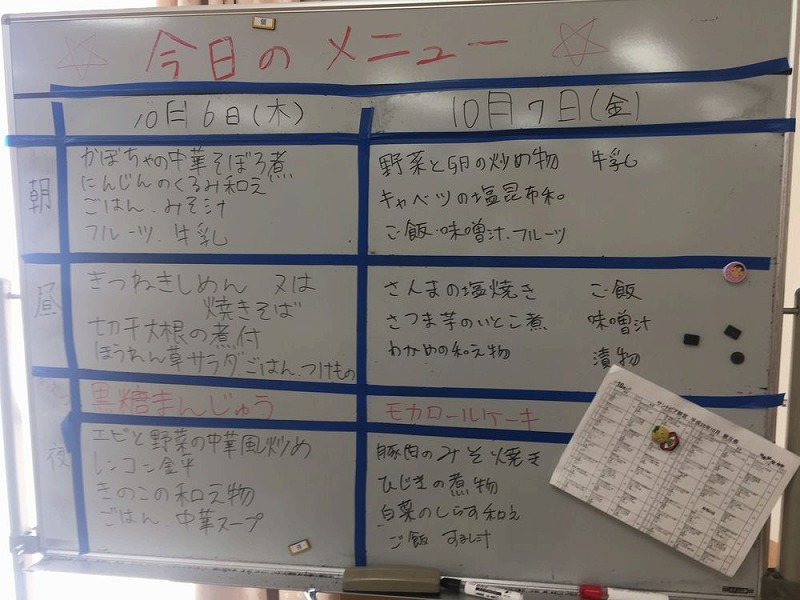 今日のメニュー
10月6日(木)
10月7日(金)
朝
かぼちゃの中華そぼろ煮
にんじんのくるみ和え
ごはん.みそ汁
フルーツ.牛乳
野菜と卵の炒め物 牛乳
キャベツの塩昆布和
ご飯・味噌汁.フルーツ
昼
きつねきしめん 又は
焼きそば
切干大根の煮付
ほうれん草サラダ.ごはん.つけもの
さんまの塩焼き ご飯
さつま芋のいとこ煮 味噌汁
わかめの和え物 漬物
黒糖まんじゅう
モカロールケーキ
夜
エビと野菜の中華風炒め
レンコン金平
きのこの和え物
ごはん.中華スープ
豚肉のみそ焼き
ひじきの煮物
白菜のしらす和え
ご飯 すまし汁